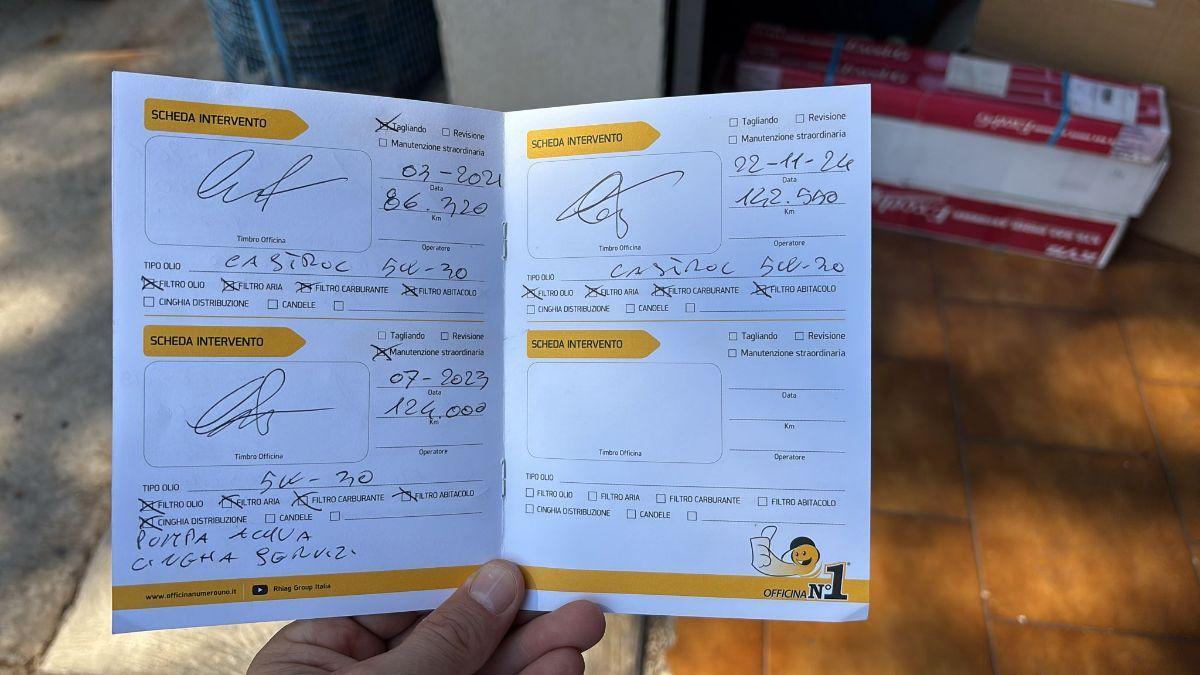 SCHEDA INTERVENTO
Tagliando Revisione
Manutenzione straordinaria
03-2021
Data
86.320
Km
Operatore
Timbro Officina
TIPO OLIO CASTROL 5W-30
FILTRO OLIO FILTRO ARIA FILTRO CARBURANTE FILTRO ABITACOLO
CINGHIA DISTRIBUZIONE CANDELE
SCHEDA INTERVENTO
Tagliando Revisione
Manutenzione straordinaria
07-2023
Data
124.000
Km
Operatore
Timbro Officina
TIPO OLIO 5W-30
FILTRO OLIO FILTRO ARIA FILTRO CARBURANTE FILTRO ABITACOLO
CINGHIA DISTRIBUZIONE CANDELE
POMPA ACQUA
CINGHIA SERVIZI
www.officinanumerouno.it Rhiag Group Italia
SCHEDA INTERVENTO
Tagliando Revisione
Manutenzione straordinaria
22-11-24
Data
142.550
Km
Operatore
Timbro Officina
TIPO OLIO CASTROL 5W-30
FILTRO OLIO FILTRO ARIA FILTRO CARBURANTE FILTRO ABITACOLO
CINGHIA DISTRIBUZIONE CANDELE
SCHEDA INTERVENTO
Tagliando Revisione
Manutenzione straordinaria
Data
Km
Operatore
Timbro Officina
TIPO OLIO
FILTRO OLIO FILTRO ARIA FILTRO CARBURANTE FILTRO ABITACOLO
CINGHIA DISTRIBUZIONE CANDELE
OFFICINA N°1